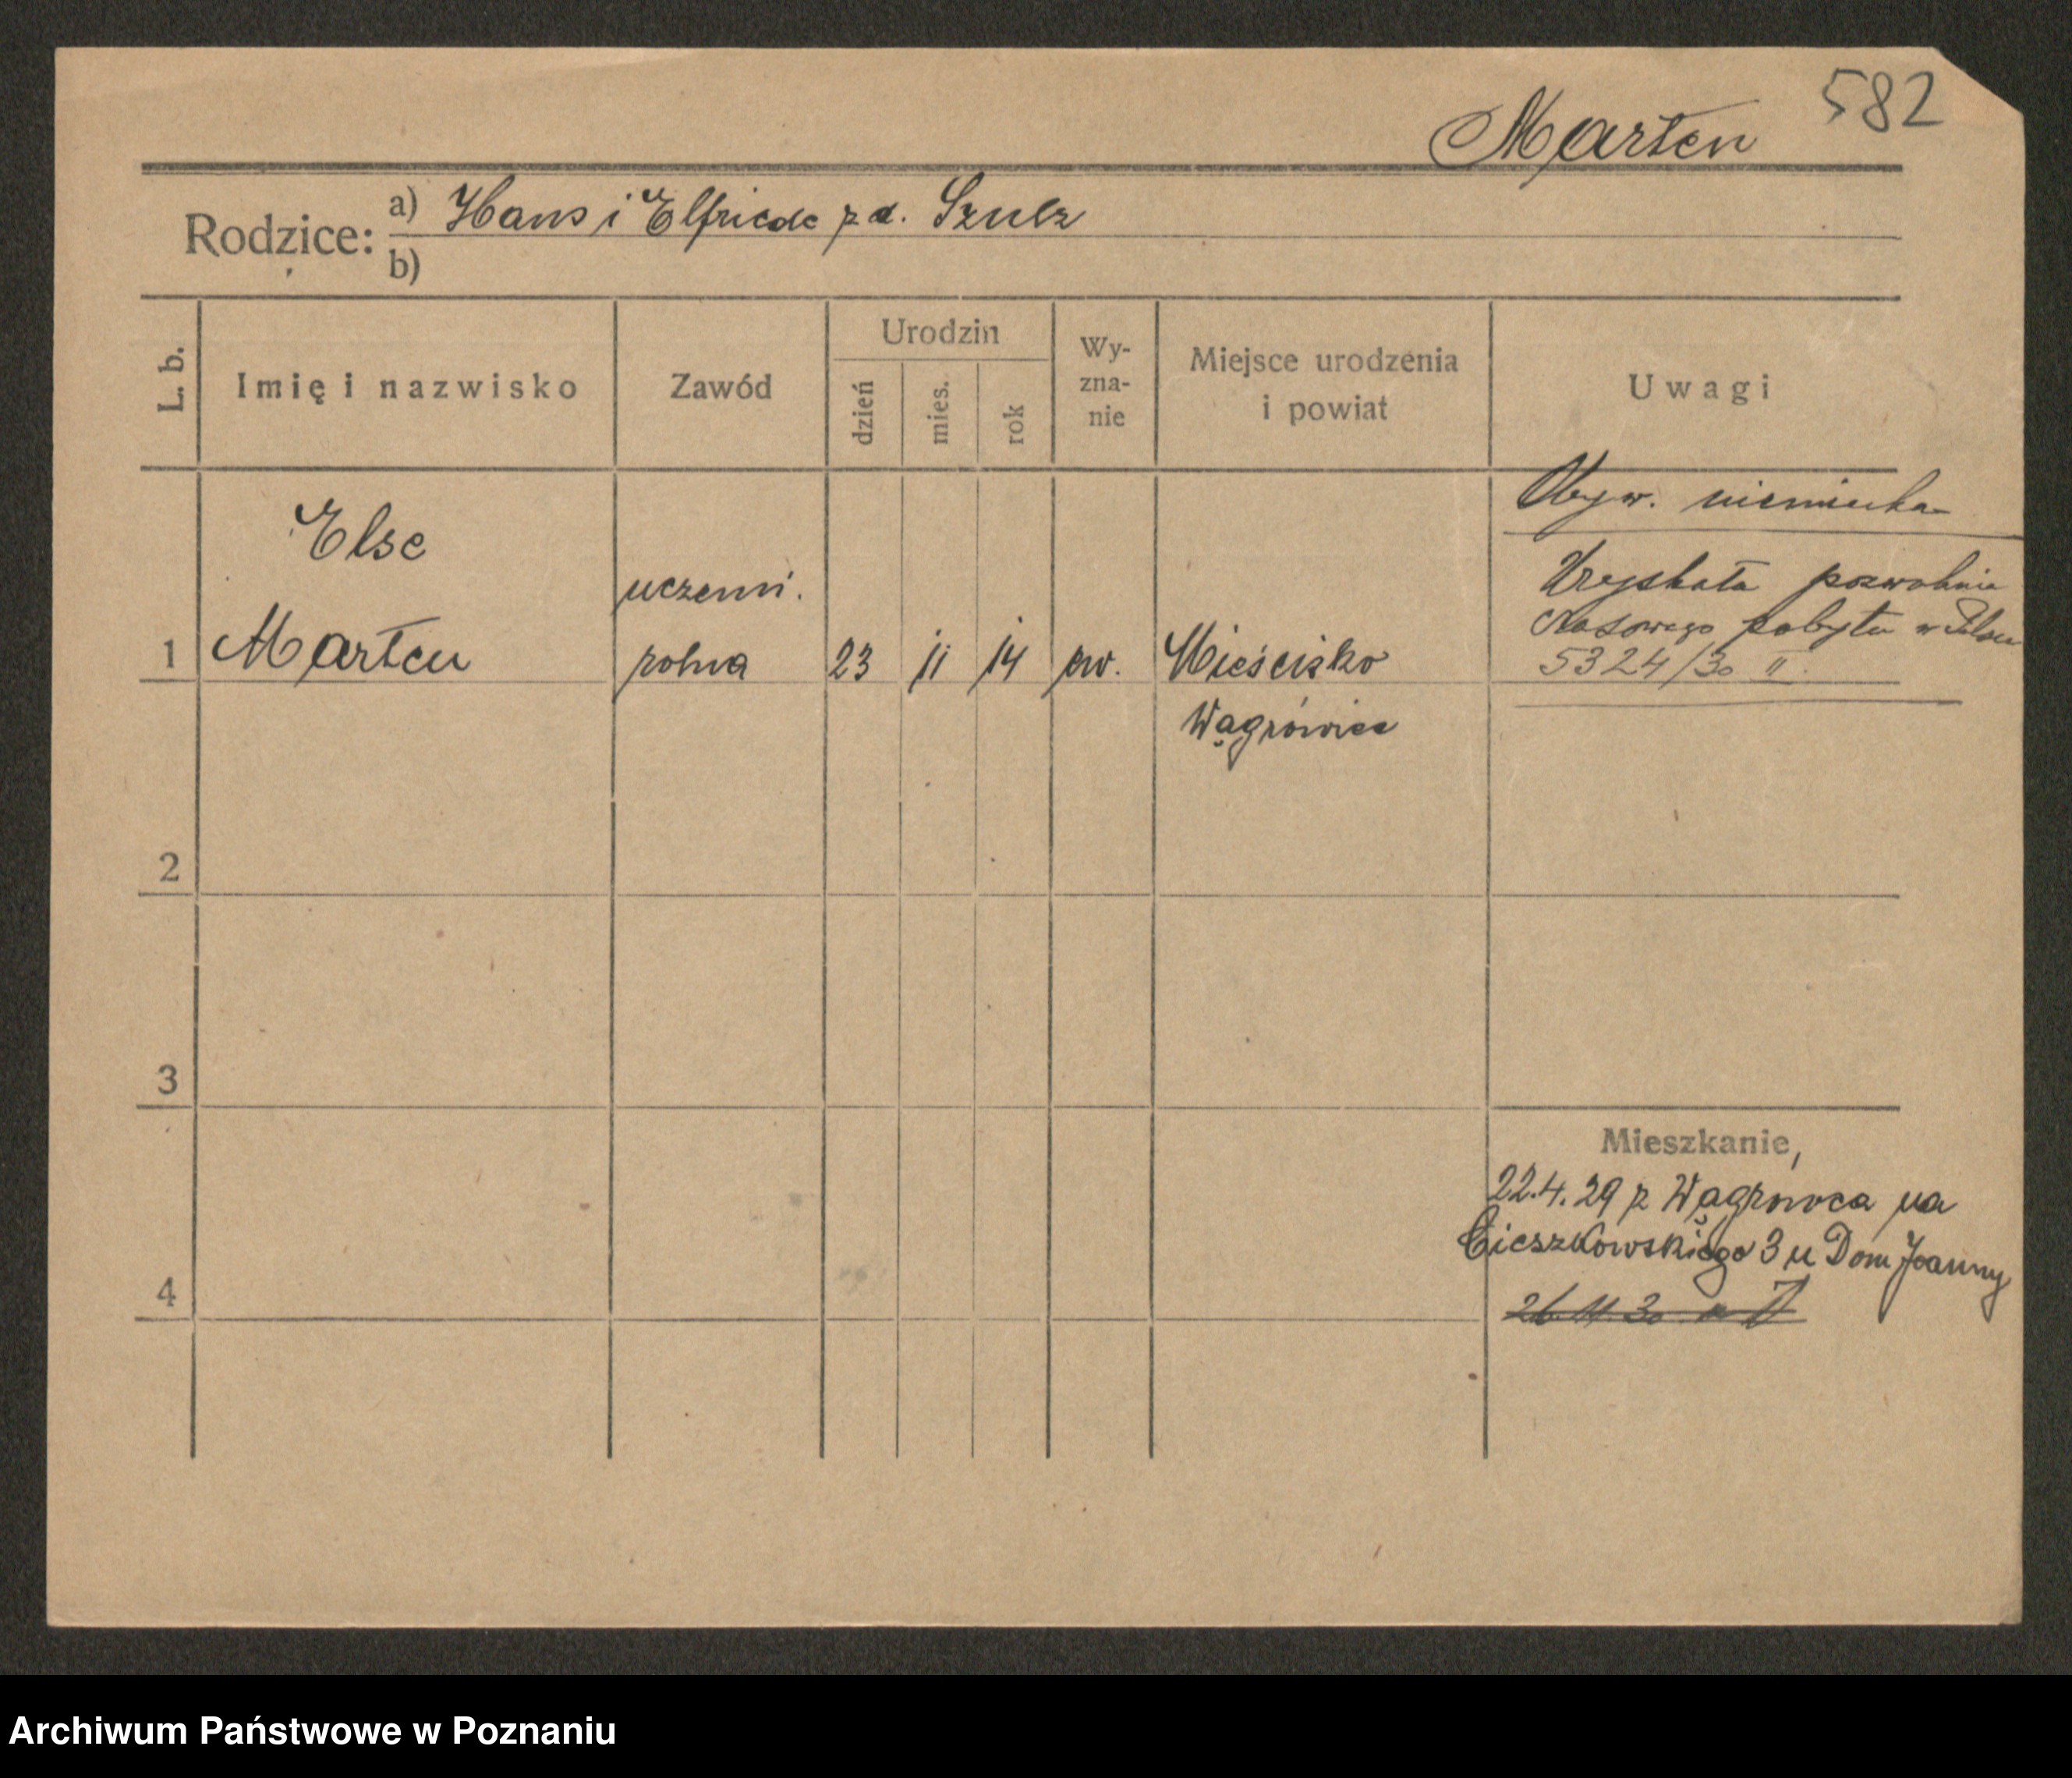 582
Marten
Rodzice: a) Hans i Elfriede z d. Szulz
b)
L. b.
Imię i nazwisko
Zawód
Urodzin
dzień
mies.
rok
Wy-
zna-
nie
Miejsce urodzenia
i powiat
Uwagi
Obyw. niemiecka
Uzyskała pozwolenie
czasowego pobytu w Polsce
5324/30 II.
Else
uczenn.
1 Marten rolna 23 11 14 ew. Mieścisko
Wągrówiec
2
3
4
Mieszkanie,
22.4.29 z Wągrowca na
Cieszkowskiego 3 u Dom Joanny
26.11.30
Archiwum Państwowe w Poznaniu